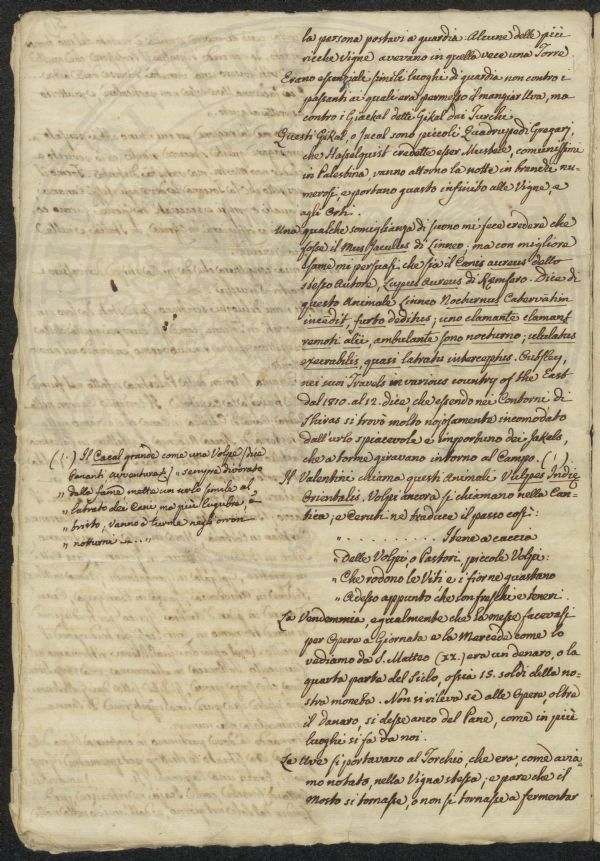 la persona postavi a guardia. Alcune delle più
ricche Vigne avevano in quella vece una Torre.
Erano essenziale simili luoghi di guardia non contro i
passanti ai quali era permesso il mangiar Uva, ma
contro i Giackal detti Gikal dai Turchi.
Questi Gikal, o Jacal sono piccoli Quadrupedi Gregarj,
che Hasselquist credette esser Mustele, comunissimi
in Palestina, vanno attorno la notte in brancki nu-
merosi, e portano guasto infinito alle Vigne, e
agli Orti.
Una qualche somiglianza di suono mi fece credere che
fosse il Mus Jaculus di Linneo; ma con migliore
esame mi persuasi che sia il Canis aureus dello
stesso Autore, Lupus Aureus di Kæmfero. Dice di
questo Animale Linneo Nocturnus Catervatim
incedit, furto deditus; uno clamante clamant
remoti alii, ambulante sono nocturno; ululatus
execrabilis, quasi latratu interceptus. Oubsley,
nei suoi Travels in various country of the East
dal 1810. al 12. dice che essendo nei Contorni di
Shiras si trovò molto nojosamente incomodato
dall'urlo spiacevole e importuno dei Jakels,
che a torme giravano intorno al Campo. (1.)
Il Valentini chiama questi Animale Vulpes Indiæ
Orientalis. Volpi ancora si chiamano nella Can-
tica; e Ceruti ne traduce il passo così:
" . . . . . . . . . . Itene a caccia
" Delle Volpi, o Pastori, piccole Volpi:
" Che rodono le Viti e i fiorne guastano
" Adesso appunto che son freschi e teneri.
La Vendemmia, egualmente che la messe facevasi
per Opere a Giornata e la Mercede come lo
vediamo da S. Matteo (XX.) era un denaro, o la
quarta parte del Siclo, ossia 15. soldi della no-
stra moneta. Non si rileva se alle Opere, oltre
il danaro, si desse anco del Pane, come in più
luoghi si fa da noi.
Le Uve si portavano al Torchio, che era, come avia-
mo notato, nella Vigna stessa; e pare che il
Mosto si tornasse, o non si tornasse a fermentar
(1.) Il Cacal grande come una Volpe (dice
Pananti avventure) " sempre divorato
" dalla fame mette un urlo simile al
" latrato dei Cani ma più lugubre, e
" tristo, vanno a turme negli orrori
" notturni &.. "